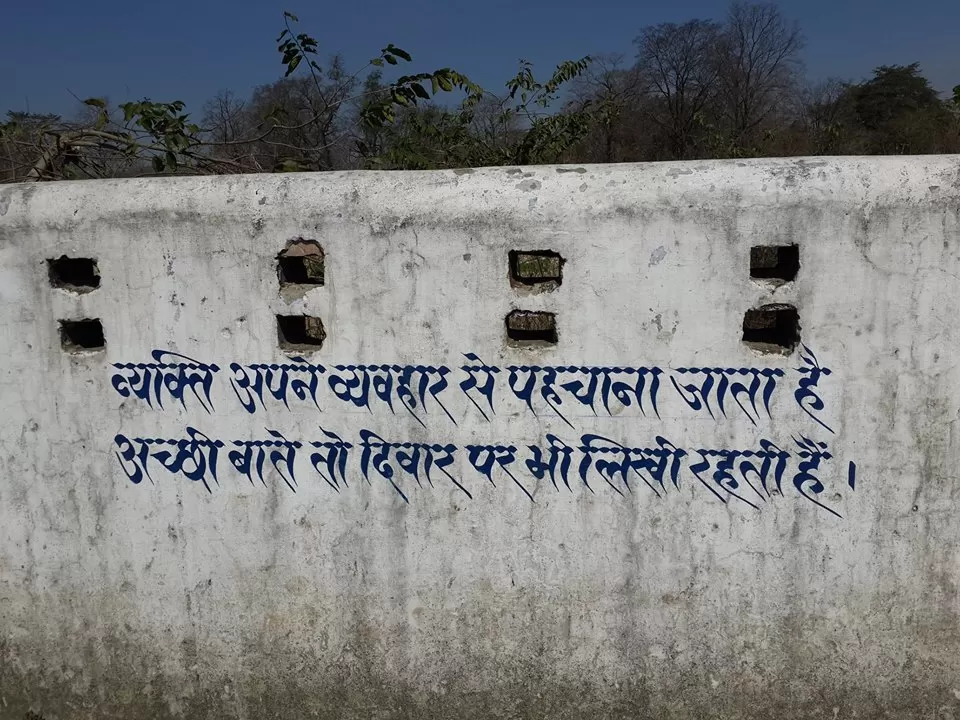 व्यक्ति अपने व्यवहार से पहचाना जाता है
अच्छी बाते तो दिवार पर भी लिखी रहती हैं ।